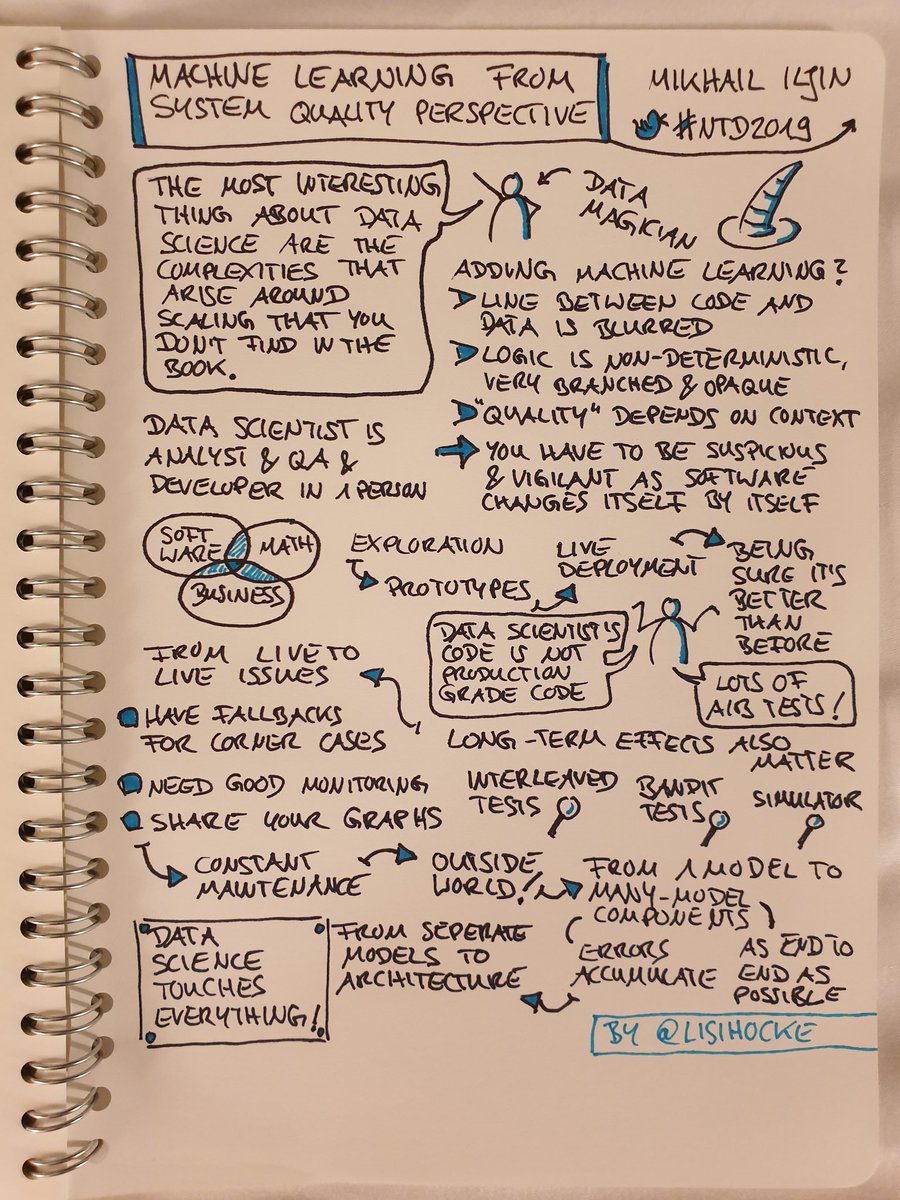 MACHINE LEARNING FROM
SYSTEM QUALITY PERSPECTIVE
MIKHAIL ILJIN
#NTD2019
THE MOST INTERESTING
THING ABOUT DATA
SCIENCE ARE THE
COMPLEXITIES THAT
ARISE AROUND
SCALING THAT YOU
DON'T FIND IN THE
BOOK.
DATA
MAGICIAN
ADDING MACHINE LEARNING?
LINE BETWEEN CODE AND
DATA IS BLURRED
LOGIC IS NON-DETERMINISTIC,
VERY BRANCHED & OPAQUE
"QUALITY" DEPENDS ON CONTEXT
YOU HAVE TO BE SUSPICIOUS
& VIGILANT AS SOFTWARE
CHANGES ITSELF BY ITSELF
DATA SCIENTIST IS
ANALYST & QA &
DEVELOPER IN 1 PERSON
SOFT
WARE
MATH
BUSINESS
EXPLORATION
PROTOTYPES
LIVE
DEPLOYMENT
BEING
SURE IT'S
BETTER
THAN
BEFORE
DATA SCIENTIST'S
CODE IS NOT
PRODUCTION
GRADE CODE
LOTS OF
A/B TESTS!
LONG-TERM EFFECTS ALSO
MATTER
INTERLEAVED
TESTS
BANDIT
TESTS
SIMULATOR
FROM LIVE TO
LIVE ISSUES
HAVE FALLBACKS
FOR CORNER CASES
NEED GOOD MONITORING
SHARE YOUR GRAPHS
CONSTANT
MAINTENANCE
OUTSIDE
WORLD!
FROM 1 MODEL TO
MANY-MODEL
COMPONENTS
ERRORS
ACCUMULATE
AS END TO
END AS
POSSIBLE
FROM SEPERATE
MODELS TO
ARCHITECTURE
DATA
SCIENCE
TOUCHES
EVERYTHING!
BY @LISIHOCKE